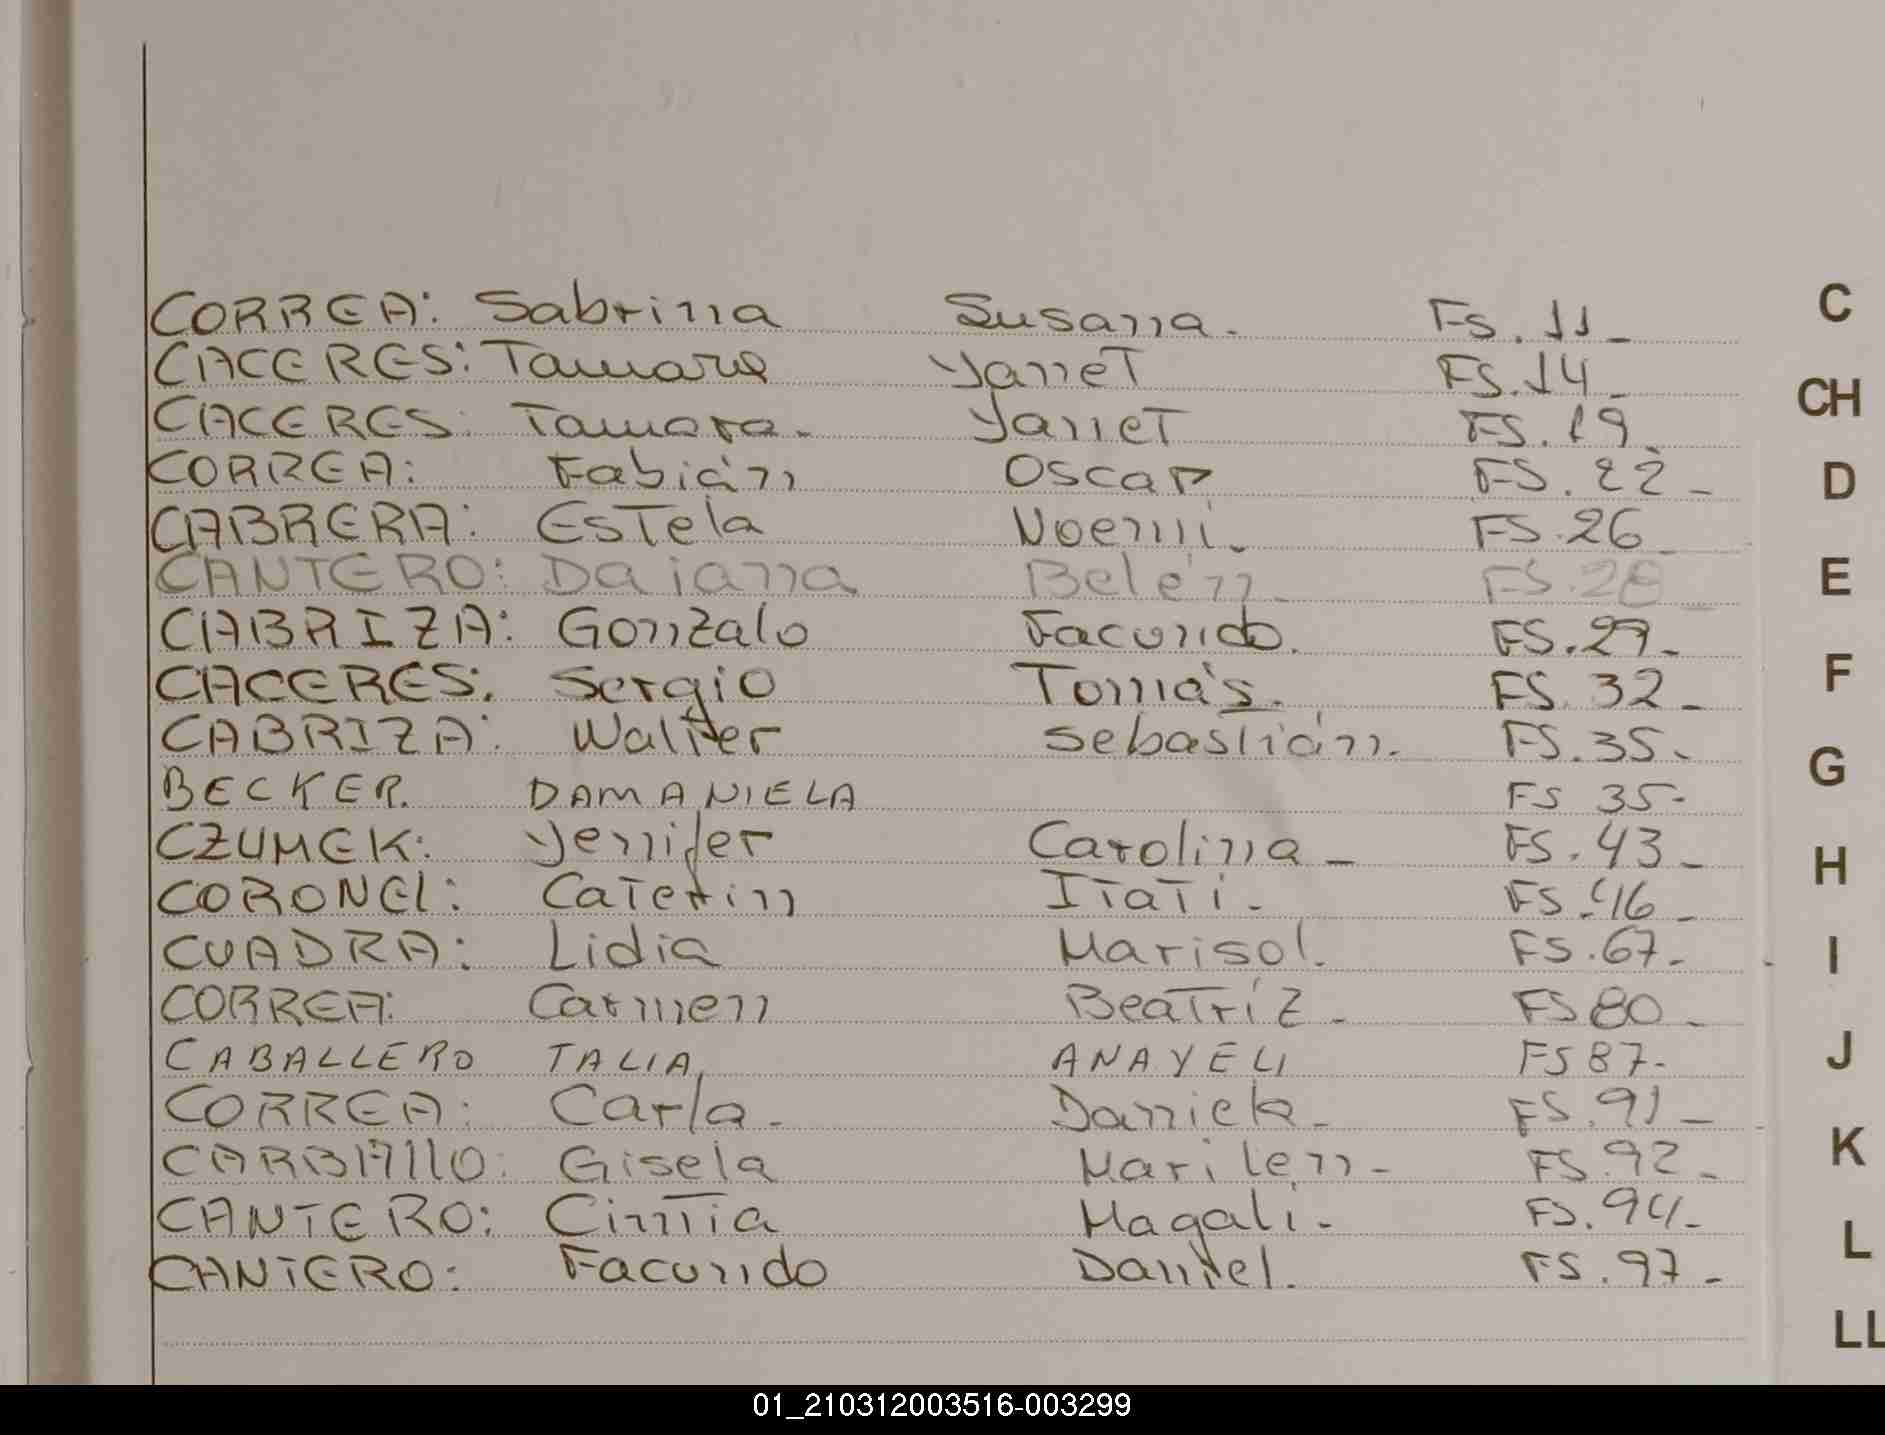 CORREA: Sabrina Susana. Fs. 11_
CACERES: Tamara Yanet FS.14_
CACERES: Tamara. Yanet FS.19_
CORREA: Fabián Oscar FS. 22_
CABRERA: Estela Noemi. FS.26_
CANTERO: Daiana Belén_ FS.28_
CABRIZA: Gonzalo Facundo. FS.29_
CACERES: Sergio Tomás. FS. 32_
CABRIZA: Walter Sebastián. FS.35.
BECKER. DAMANIELA FS 35-
CZUMEK: Yenifer Carolina_ FS. 43_
CORONEl: Caterin Itati. FS.46_
CUADRA: Lidia Marisol. FS.67.
CORREA: Carmen Beatríz_ FS 80_
CABALLERO TALIA ANAYELI FS 87-
CORREA: Carla. Daniela_ FS.91_
CARBAllO: Gisela Marilen_ FS.92_
CANTERO: Cintia Magali. FS.94_
CANTERO: Facundo Daniel. FS.97_
C
CH
D
E
F
G
H
I
J
K
L
LL
01_210312003516-003299